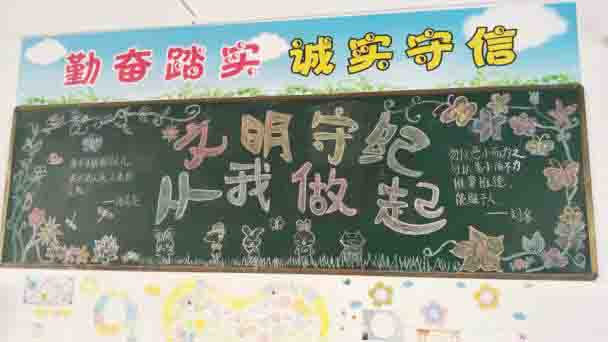 勤奋踏实 诚实守信
文明守纪
从我做起
勿以恶小而为之
勿以善小而不为
惟贤惟德
能服于人
——刘备